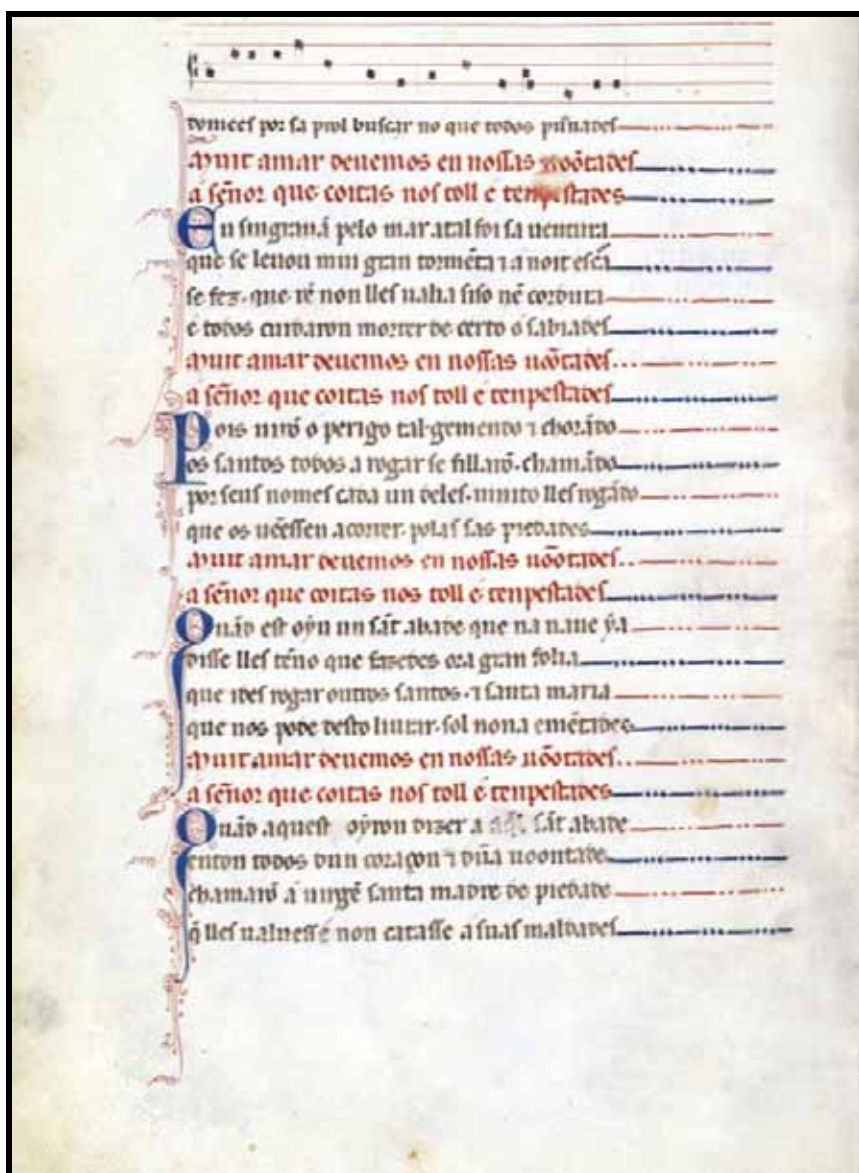 romees por sa prol buscar no que todos punades
Muit amar deuemos en nossas uoõtades
a señor que coitas nos toll e tenpestades
En singrauã pelo mar atal foi sa uentura
que se leuou mui gran tormẽta ⁊ a noit escũ
se fez. que rẽ non lles ualia siso nẽ cordura
e todos cuidaron morrer de certo o sabiades
Muit amar deuemos en nossas uoõtades
a señor que coitas nos toll e tenpestades
Pois uirõ o perigo tal. gemendo ⁊ chorãdo
os santos todos a rogar se fillarõ. chamãdo
por seus nomes cada un deles. muito lles rogãdo
que os uẽessen acorrer. polas sas piedades
Muit amar deuemos en nossas uoõtades
a señor que coitas nos toll e tenpestades
Quãd est oyu un sãt abade que na naue ỹa
disse lles tẽno que fazedes ora gran folia
que ides rogar outros santos. ⁊ santa maria
que nos pode desto liurar. sol non a emẽtades
Muit amar deuemos en nossas uoõtades
a señor que coitas nos toll e tenpestades
Quãd aquest oyron dizer a sãt abade
enton todos dun coraçon ⁊ dũa uoontade
chamarõ a uirgẽ santa madre de piedade
q̃ lles ualuesse non catasse a suas maldades